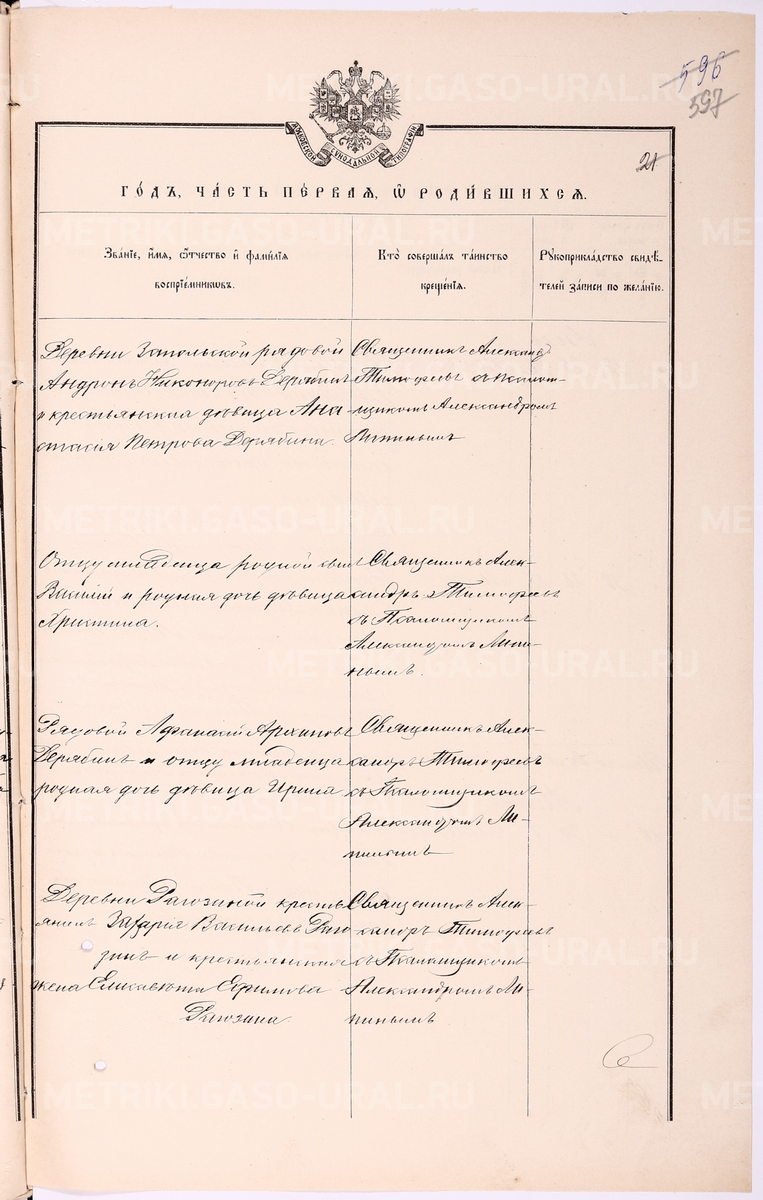 596
597
МОСКОВСКОЙ СѴНОДАЛЬНОЙ ТИПОГРАФІИ
21
ГО́ДЪ, ЧА́СТЬ ПЕ́РВАЯ, Ѡ РОДИ́ВШИХСЯ.
Зва́нїе, и́мя, ѻ́тчество и҆ фами́лїя воспрїе́мниковъ.
Кто̀ соверша́лъ та́инство креще́нїя.
Рꙋкоприкла́дство свидѣ́телей за́писи по жела́нїю.
Деревни Запольской рядовой
Андронъ Никоноровъ Дерябинъ
и крестьянская дѣвица Ана-
стасія Петрова Дерябина.
Священникъ Александръ
Тимофеевъ съ псалом-
щикомъ Александромъ
Липинымъ
Отцу младенца родной сынъ
Василій и родная дочь дѣвица
Христина.
Священникъ Алек-
сандръ Тимофеевъ
съ Псаломщикомъ
Александромъ Липи-
нымъ.
Рядовой Афанасій Архиповъ
Дерябинъ и отцу младенца
родная дочь дѣвица Ирина
Священникъ Алек-
сандръ Тимофеевъ
съ Псаломщикомъ
Александромъ Ли-
пинымъ
Деревни Рагозиной кресть-
янинъ Захарія Васильевъ Раго-
зинъ и крестьянская
жена Елисавета Ефимова
Рагозина
Священникъ Алек-
сандръ Тимофеевъ
съ Псаломщикомъ
Александромъ Ли-
пинымъ
METRIKI.GASO-URAL.RU